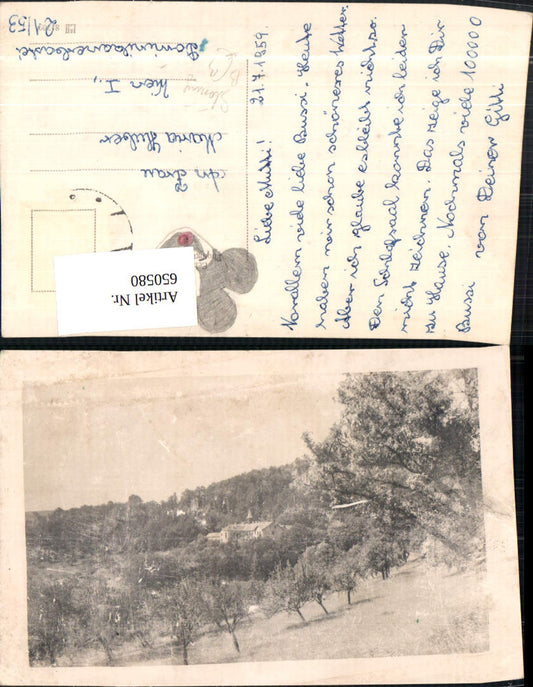 Liebe Mutti!     21.7.1959.
Vorallem viele liebe Bussi. Heute
haben wir schon schöneres Wetter.
Aber ich glaube es bleibt nicht so.
Den Schlafsaal kannte ich leider
nicht zeichnen. Das zeige ich Dir
zu Hause. Nochmals viele 100000
Bussi
von Deiner Gitti
An Frau
Maria Huber
Wien I.,
21/53
Artikel Nr.
650580